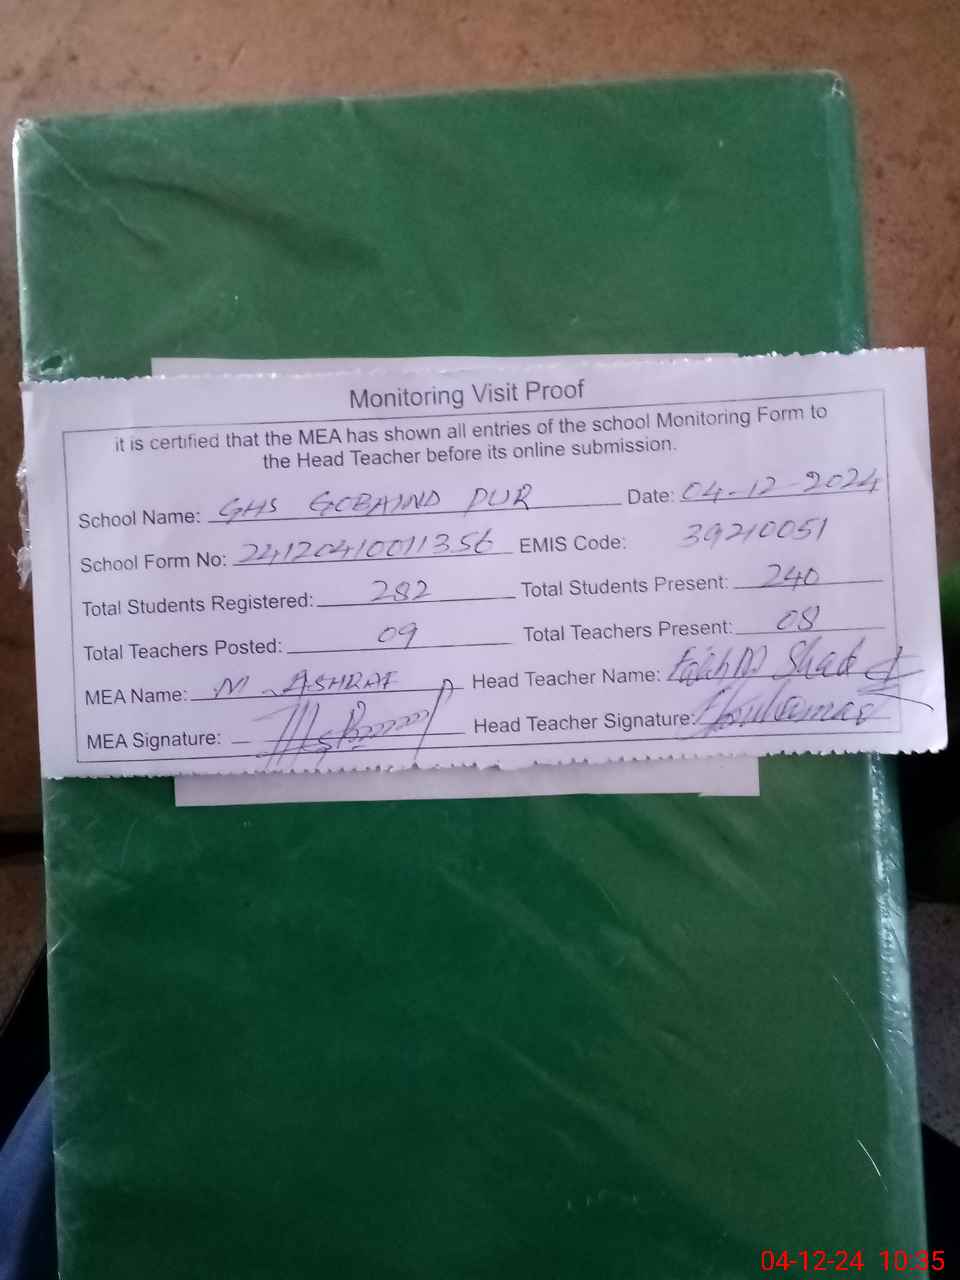 Monitoring Visit Proof
it is certified that the MEA has shown all entries of the school Monitoring Form to
the Head Teacher before its online submission.
School Name: GHS GOBAIND PUR Date: 04-12-2024
School Form No: 24120410011356 EMIS Code: 39210051
Total Students Registered: 282 Total Students Present: 240
Total Teachers Posted: 09 Total Teachers Present: 08
MEA Name: M. ASHRAF Head Teacher Name:
MEA Signature: Head Teacher Signature:
04-12-24 10:35